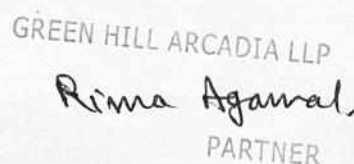 GREEN HILL ARCADIA LLP
Rima Agarwal
PARTNER